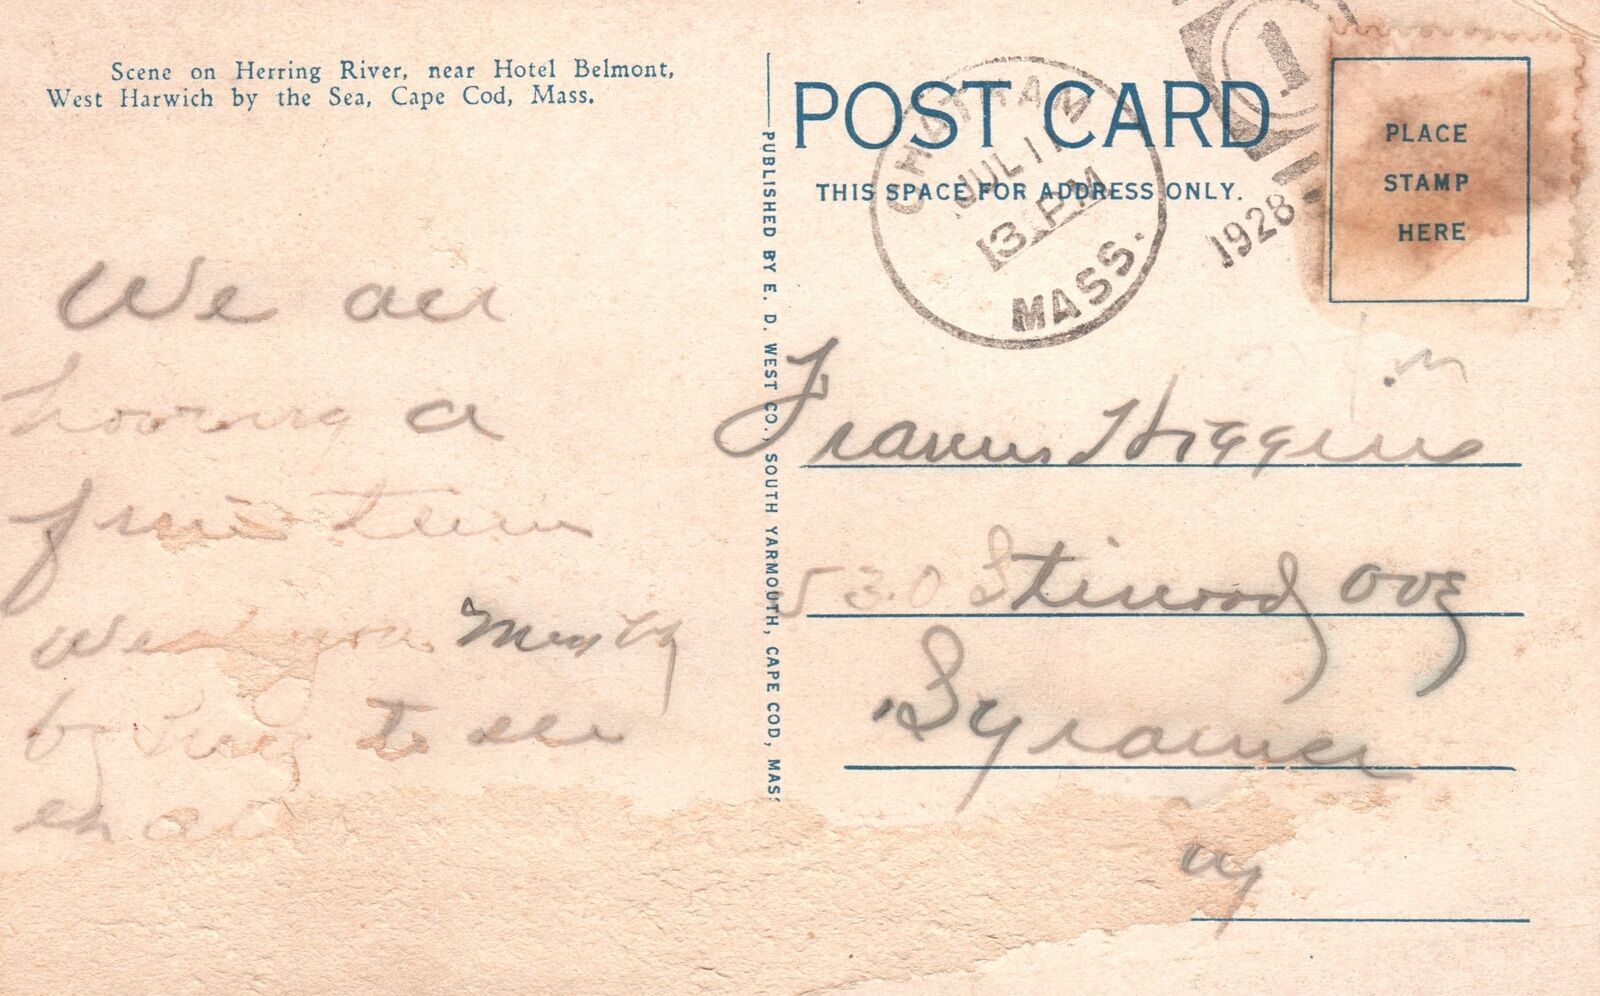 Scene on Herring River, near Hotel Belmont,
West Harwich by the Sea, Cape Cod, Mass.
POST CARD
THIS SPACE FOR ADDRESS ONLY.
PLACE
STAMP
HERE
CHATHAM
JUL 11
3 PM
MASS.
1928
1
PUBLISHED BY E. D. WEST CO., SOUTH YARMOUTH, CAPE COD, MASS
We are
having a
fine time
to see
Francis Higgins
530
Syracuse
NY